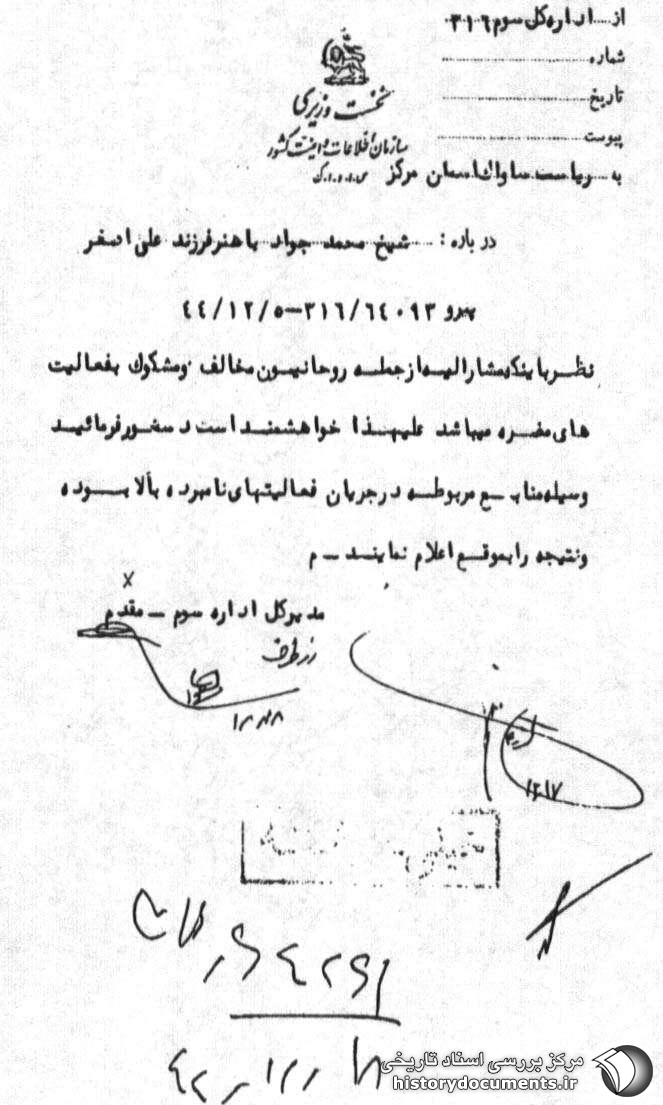 از.....اداره کل سوم ۳۱۶
شماره
تاریخ
پیوست
نخست وزیری
سازمان اطلاعات و امنیت کشور
س.ا.و.ا.ک
به ..... ریاست ساواک استان مرکز
درباره : شیخ محمد جواد باهنر فرزند علی اصغر
پیرو ۳۱۶/۶۴۰۹۳-۴۴/۱۲/۵
نظر باینکه مشارالیه از جمله روحانیون مخالف و مشکوک بفعالیت
های مضره میباشد علیهذا خواهشمند است دستور فرمائید
وسیله منابع مربوطه در جریان فعالیتهای نامبرده بالا بوده
و نتیجه را بموقع اعلام نمایند - م
مدیر کل اداره سوم - مقدم
x
از طرف
مرکز بررسی اسناد تاریخی
historydocuments.ir